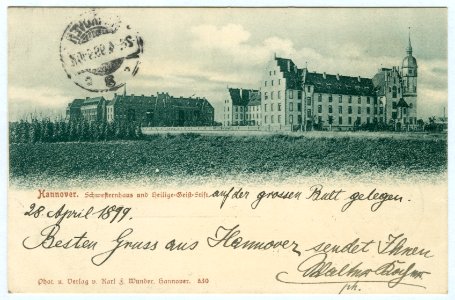 Hannover. Schwesternhaus und Heilige-Geist-Stift. auf der grossen Bult gelegen.
28. April 1899.
Besten Gruss aus Hannover sendet Ihnen
Walter
ph.
Phot. u. Verlag v. Karl F. Wunder, Hannover. 630